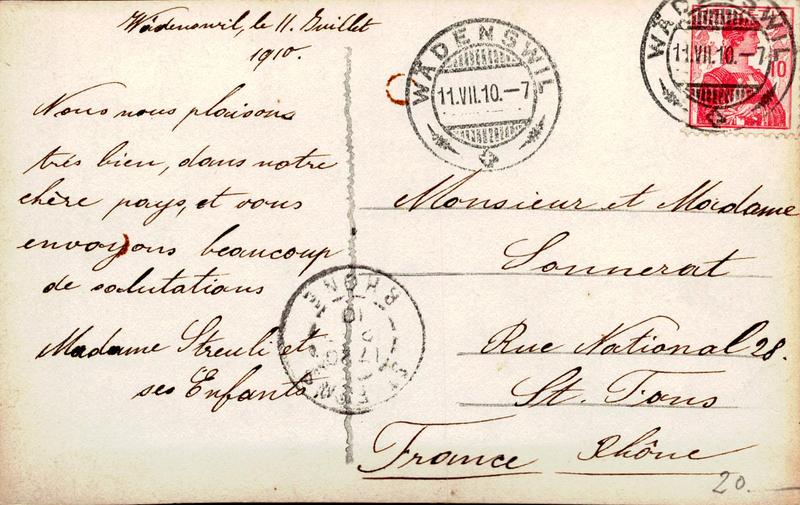 Wädenswil, le 11. Juillet
1910.
Nous nous plaisons
très bien, dans notre
chère pays, et vous
envoyons beaucoup
de salutations
Madame Streuli et
ses Enfants
WÄDENSWIL
11.VII.10.–7
WÄDENSWIL
11.VII.10.–7
10
Monsieur et Madame
Sonnerat
Rue National 28.
St. Fons
France Rhône
RHONE
20.